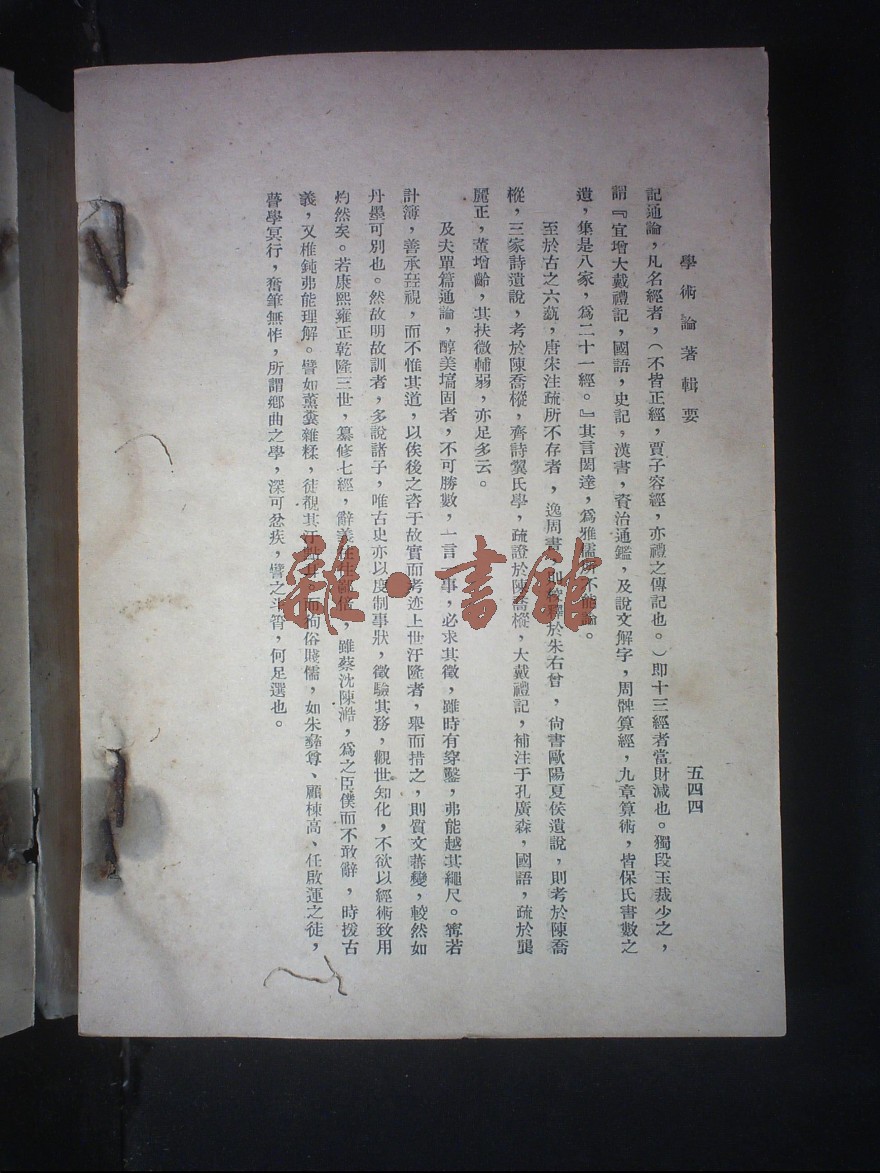 學術論著輯要
五四四
記通論，凡名經者，（不皆正經，賈子容經，亦禮之傳記也。）即十三經者當財減也。獨段玉裁少之，
謂『宜增大戴禮記，國語，史記，漢書，資治通鑑，及說文解字，周髀算經，九章算術，皆保氏書數之
遺，集是八家，爲二十一經。』其言閎達，爲雅儒所不能論。
至於古之六蓺，唐宋注疏所不存者，逸周書，則釋於朱右曾，尙書歐陽夏侯遺說，則考於陳喬
樅，三家詩遺說，考於陳喬樅，齊詩翼氏學，疏證於陳喬樅，大戴禮記，補注于孔廣森，國語，疏於龔
麗正，董增齡，其扶微輔弱，亦足多云。
及夫單篇通論，醇美塙固者，不可勝數，一言一事，必求其徵，雖時有穿鑿，弗能越其繩尺。寗若
計簿，善承視，而不惟其道，以俟後之咨于故實而考迹上世汙隆者，舉而措之，則質文蕃變，較然如
丹墨可別也。然故明故訓者，多說諸子，唯古史亦以度制事狀，徵驗其務，觀世知化，不欲以經術致用
灼然矣。若康熙雍正乾隆三世，纂修七經，辭義往往鄙倍，雖蔡沈陳澔，爲之臣僕而不敢辭，時援古
義，又椎鈍弗能理解。譬如薰糞雜糅，徒覩其汙。而拘俗賤儒，如朱彝尊、顧棟高、任啟運之徒，
瞽學冥行，奮筆無怍，所謂鄉曲之學，深可忿疾，譬之斗筲，何足選也。
雜·書館